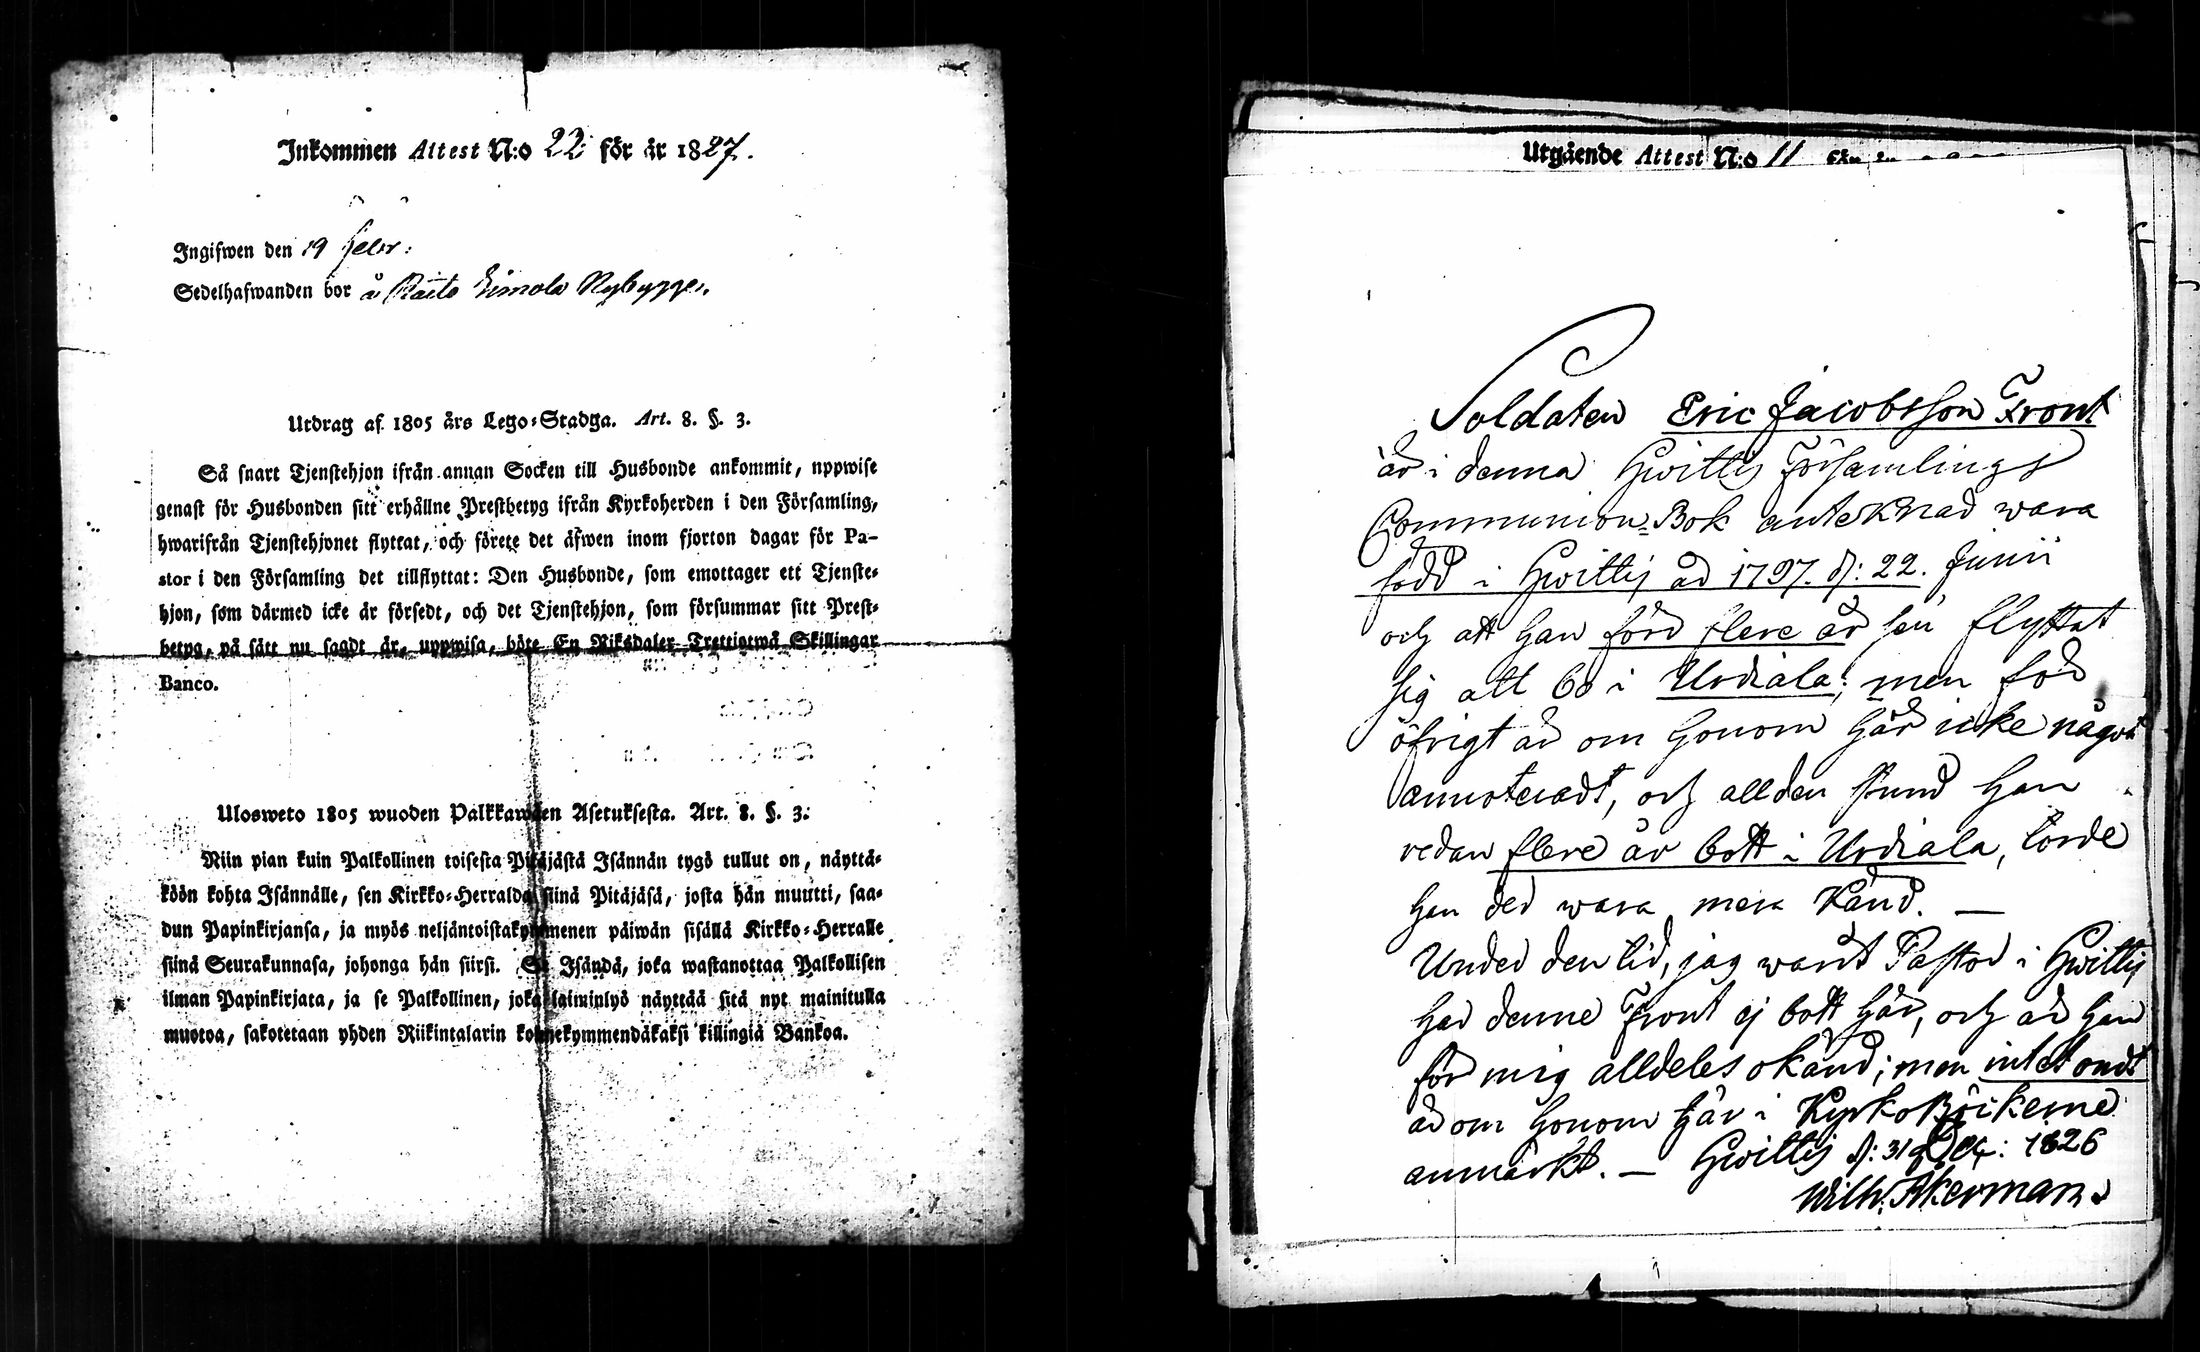 Inkommen Attest N:o 22 för år 1827.
Ingifwen den 19 Febr:
Sedelhafwanden bor å Rasto Simola Nybygge.
Utdrag af 1805 års Lego-Stadga. Art. 8. §. 3.
Så snart Tjenstehjon ifrån annan Socken till Husbonde ankommit, uppwise
genast för Husbonden sitt erhållne Prestbetyg ifrån Kyrkoherden i den Församling,
hwarifrån Tjenstehjonet flyttat, och förete det äfwen inom fjorton dagar för Pa-
stor i den Församling det tillflyttat: Den Husbonde, som emottager ett Tjenste-
hjon, som därmed icke är försedt, och det Tjenstehjon, som försummar sitt Prest-
betyg, på sätt nu sagdt är, uppwisa, böte En Riksdaler Trettiotwå Skillingar
Banco.
Ulosweto 1805 wuoden Palkkawäen Asetuksesta. Art. 8. §. 3:
Niin pian kuin Palkollinen toisesta Pitäjästä Isännän tygö tullut on, näyttä-
köön kohta Isännälle, sen Kirkko-Herralda siinä Pitäjäsä, josta hän muutti, saa-
dun Papinkirjansa, ja myös neljäntoistakymmenen päiwän sisällä Kirkko-Herralle
siinä Seurakunnasa, johonga hän siirsi. Se Isändä, joka wastanottaa Palkollisen
ilman Papinkirjata, ja se Palkollinen, joka laiminlyö näyttää sitä nyt mainitulla
muotoa, sakotetaan yhden Riikintalarin kolmekymmendäkaksi killingiä Bankoa.
Utgående Attest N:o 11 för år
Soldaten Eric Jacobsson Front
är i denna Hwittis Församlings
Communion-Bok anteknad wara
född i Hwittis år 1797. d: 22. Junii
och att han förd flere år sen flyttat
sig att bo i Urdiala; men för
öfrigt är om honom här icke något
annoteradt, och allden stund han
redan flere år bott i Urdiala, torde
han der wara mera känd. —
Under den tid, jag warit Pastor i Hwittis
har denne Front ej bott här, och är han
för mig alldeles okänd; men intet ondt
är om honom här i KyrkoBöckerne
anmärkt. — Hwittis d: 31 Dec: 1826
Wilh. Åkerman